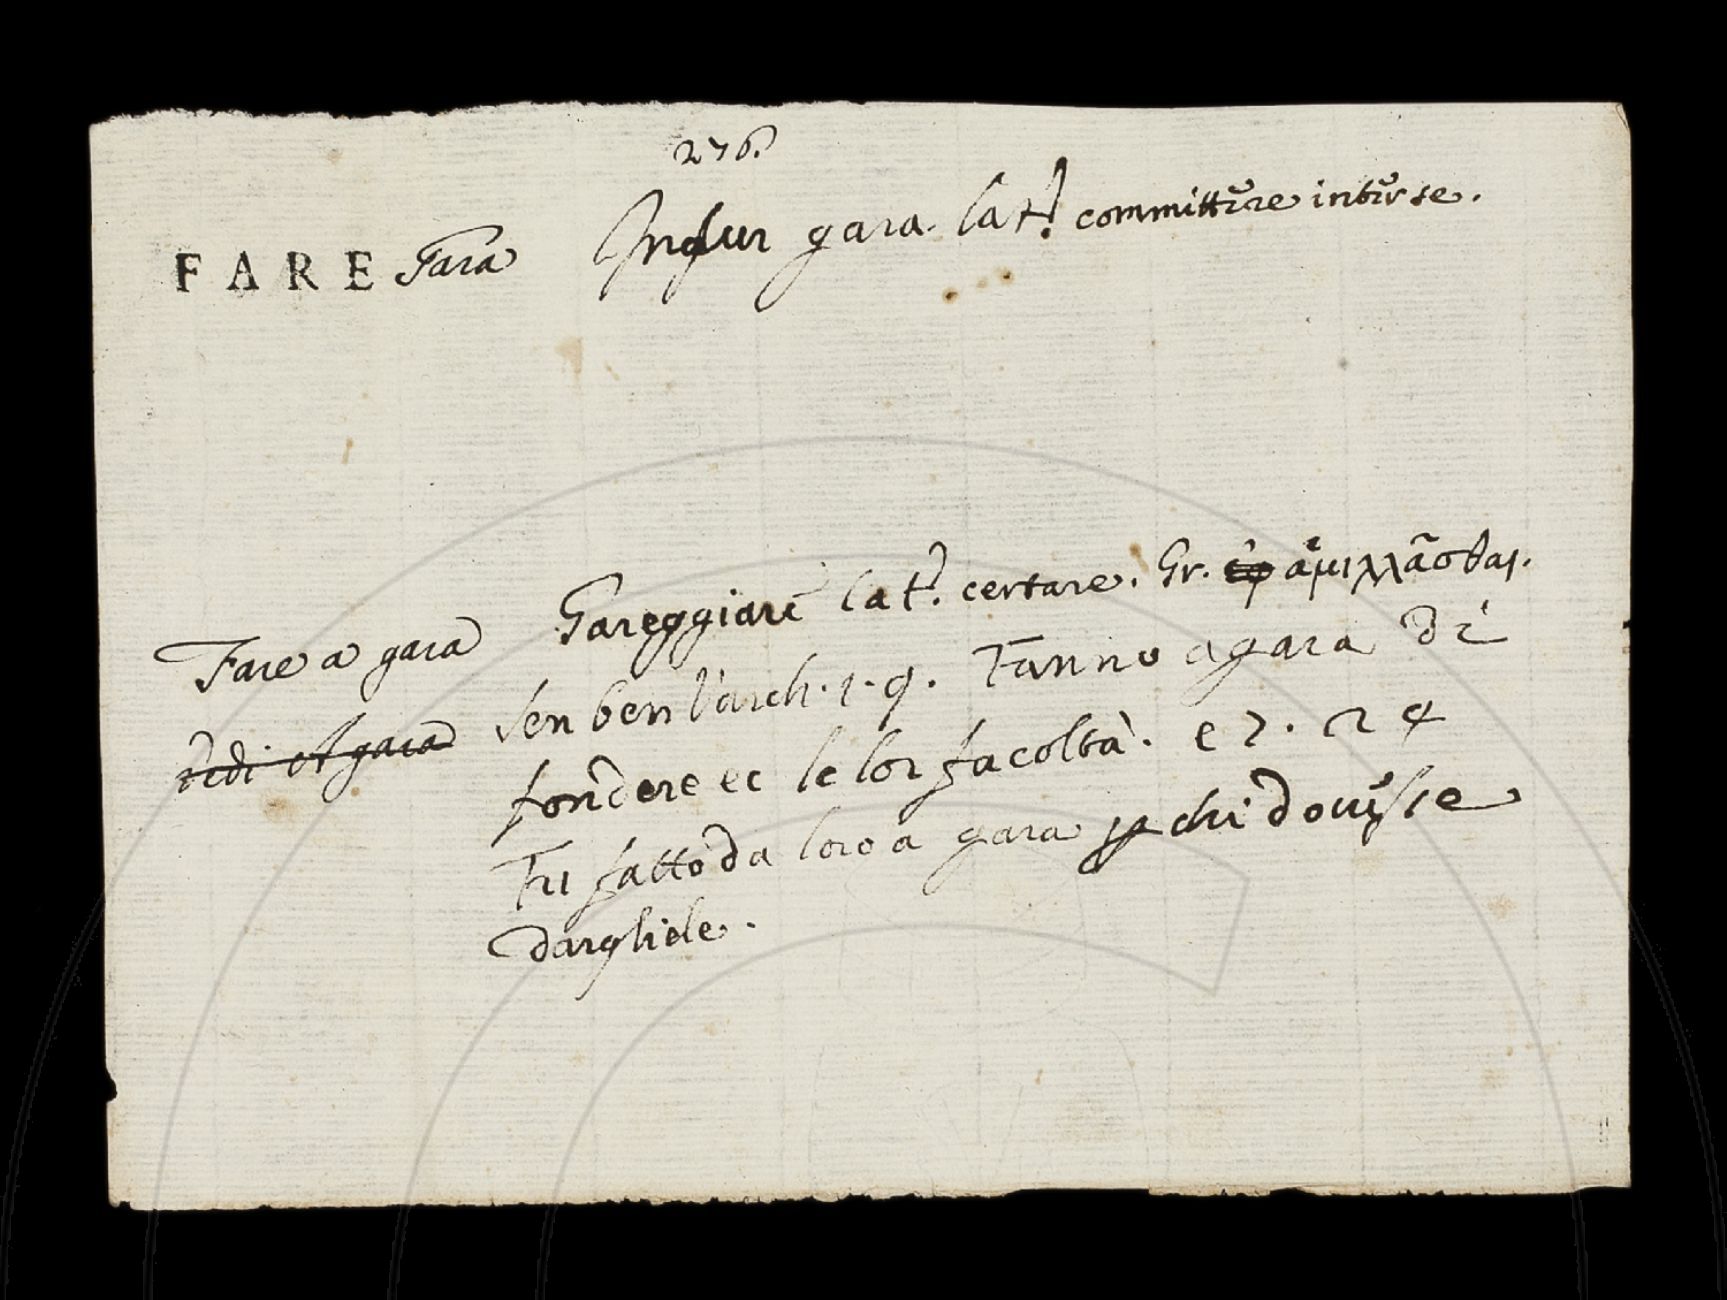 276.
FARE Gara Indur gara. lat. committere inter se.
Fare a gara Gareggiare lat. certare. Gr. ἁμιλλᾶσθαι.
Vedi A gara Sen ben Varch. 1. 9. Fanno a gara di
fondere ec le lor facoltà. e 7. 24
Fu fatto da loro a gara p chi dovesse
dargliele.